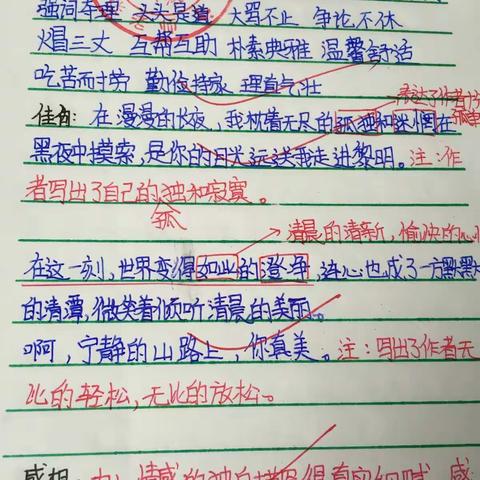 强词夺理 头头是道 大骂不止 争论不休
火冒三丈 互帮互助 朴素典雅 温馨舒适
吃苦而耐劳 勤俭持家 理直气壮
表达了作者
佳句：在漫漫的长夜，我枕着无尽的孤独和迷惘在
黑夜中摸索，是你的目光远送我走进黎明。注：作
者写出了自己的独和寂寞。
孤
清晨的清新，愉快的心
在这一刻，世界变得如此的澄净，连心也成了一方默默
的清潭，微笑着倾听清晨的美丽。
啊，宁静的山路上，你真美。注：写出了作者无
比的轻松，无比的放松。
感想：
情感的独白描写得真实细腻，感